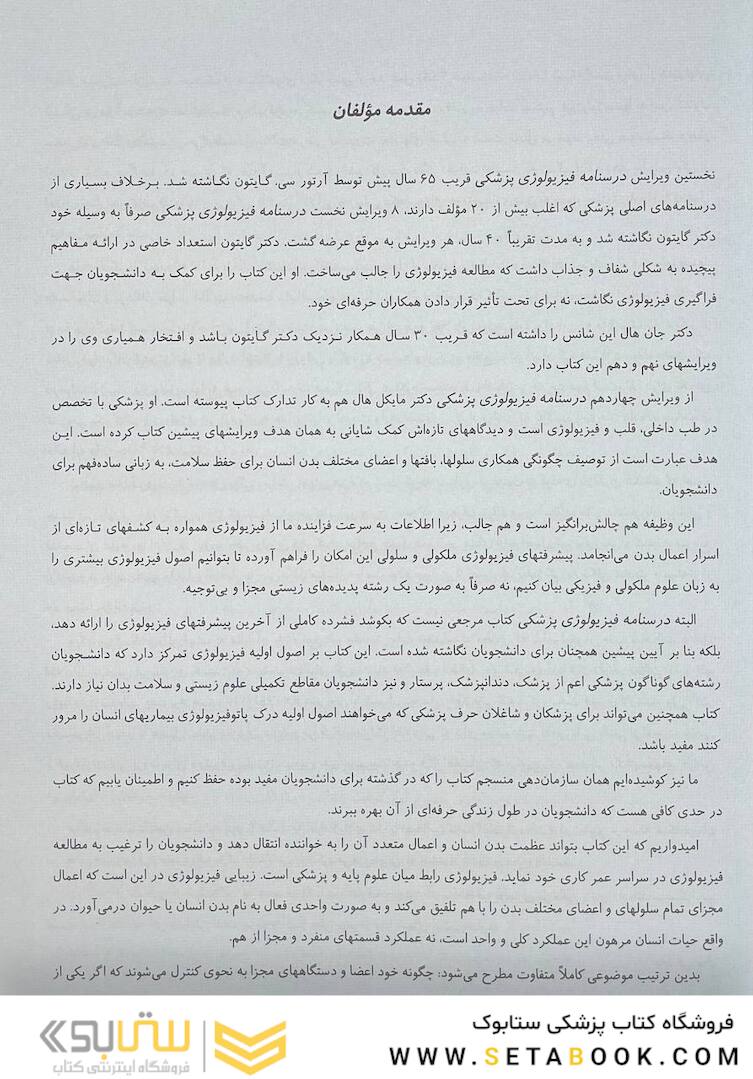 مقدمه مؤلفان
نخستین ویرایش درسنامه فیزیولوژی پزشکی قریب ۶۵ سال پیش توسط آرتور سی. گایتون نگاشته شد. برخلاف بسیاری از
درسنامه‌های اصلی پزشکی که اغلب بیش از ۲۰ مؤلف دارند، ۸ ویرایش نخست درسنامه فیزیولوژی پزشکی صرفاً به وسیله خود
دکتر گایتون نگاشته شد و به مدت تقریباً ۴۰ سال، هر ویرایش به موقع عرضه گشت. دکتر گایتون استعداد خاصی در ارائه مفاهیم
پیچیده به شکلی شفاف و جذاب داشت که مطالعه فیزیولوژی را جالب می‌ساخت. او این کتاب را برای کمک به دانشجویان جهت
فراگیری فیزیولوژی نگاشت، نه برای تحت تأثیر قرار دادن همکاران حرفه‌ای خود.
دکتر جان هال این شانس را داشته است که قریب ۳۰ سال همکار نزدیک دکتر گایتون باشد و افتخار همیاری وی را در
ویرایشهای نهم و دهم این کتاب دارد.
از ویرایش چهاردهم درسنامه فیزیولوژی پزشکی دکتر مایکل هال هم به کار تدارک کتاب پیوسته است. او پزشکی با تخصص
در طب داخلی، قلب و فیزیولوژی است و دیدگاههای تازه‌اش کمک شایانی به همان هدف ویرایشهای پیشین کتاب کرده است. این
هدف عبارت است از توصیف چگونگی همکاری سلولها، بافتها و اعضای مختلف بدن انسان برای حفظ سلامت، به زبانی ساده‌فهم برای
دانشجویان.
این وظیفه هم چالش‌برانگیز است و هم جالب، زیرا اطلاعات به سرعت فزاینده ما از فیزیولوژی همواره به کشفهای تازه‌ای از
اسرار اعمال بدن می‌انجامد. پیشرفتهای فیزیولوژی ملکولی و سلولی این امکان را فراهم آورده تا بتوانیم اصول فیزیولوژی بیشتری را
به زبان علوم ملکولی و فیزیکی بیان کنیم، نه صرفاً به صورت یک رشته پدیده‌های زیستی مجزا و بی‌توجیه.
البته درسنامه فیزیولوژی پزشکی کتاب مرجعی نیست که بکوشد فشرده کاملی از آخرین پیشرفتهای فیزیولوژی را ارائه دهد،
بلکه بنا بر آیین پیشین همچنان برای دانشجویان نگاشته شده است. این کتاب بر اصول اولیه فیزیولوژی تمرکز دارد که دانشجویان
رشته‌های گوناگون پزشکی اعم از پزشک، دندانپزشک، پرستار و نیز دانشجویان مقاطع تکمیلی علوم زیستی و سلامت بدان نیاز دارند.
کتاب همچنین می‌تواند برای پزشکان و شاغلان حرف پزشکی که می‌خواهند اصول اولیه درک پاتوفیزیولوژی بیماریهای انسان را مرور
کنند مفید باشد.
ما نیز کوشیده‌ایم همان سازمان‌دهی منسجم کتاب را که در گذشته برای دانشجویان مفید بوده حفظ کنیم و اطمینان یابیم که کتاب
در حدی کافی هست که دانشجویان در طول زندگی حرفه‌ای از آن بهره ببرند.
امیدواریم که این کتاب بتواند عظمت بدن انسان و اعمال متعدد آن را به خواننده انتقال دهد و دانشجویان را ترغیب به مطالعه
فیزیولوژی در سراسر عمر کاری خود نماید. فیزیولوژی رابط میان علوم پایه و پزشکی است. زیبایی فیزیولوژی در این است که اعمال
مجزای تمام سلولهای و اعضای مختلف بدن را با هم تلفیق می‌کند و به صورت واحدی فعال به نام بدن انسان یا حیوان درمی‌آورد. در
واقع حیات انسان مرهون این عملکرد کلی و واحد است، نه عملکرد قسمتهای منفرد و مجزا از هم.
بدین ترتیب موضوعی کاملاً متفاوت مطرح می‌شود: چگونه خود اعضا و دستگاههای مجزا به نحوی کنترل می‌شوند که اگر یکی از
فروشگاه کتاب پزشکی ستابوک
WWW.SETABOOK.COM
ستابوک
فروشگاه اینترنتی کتاب